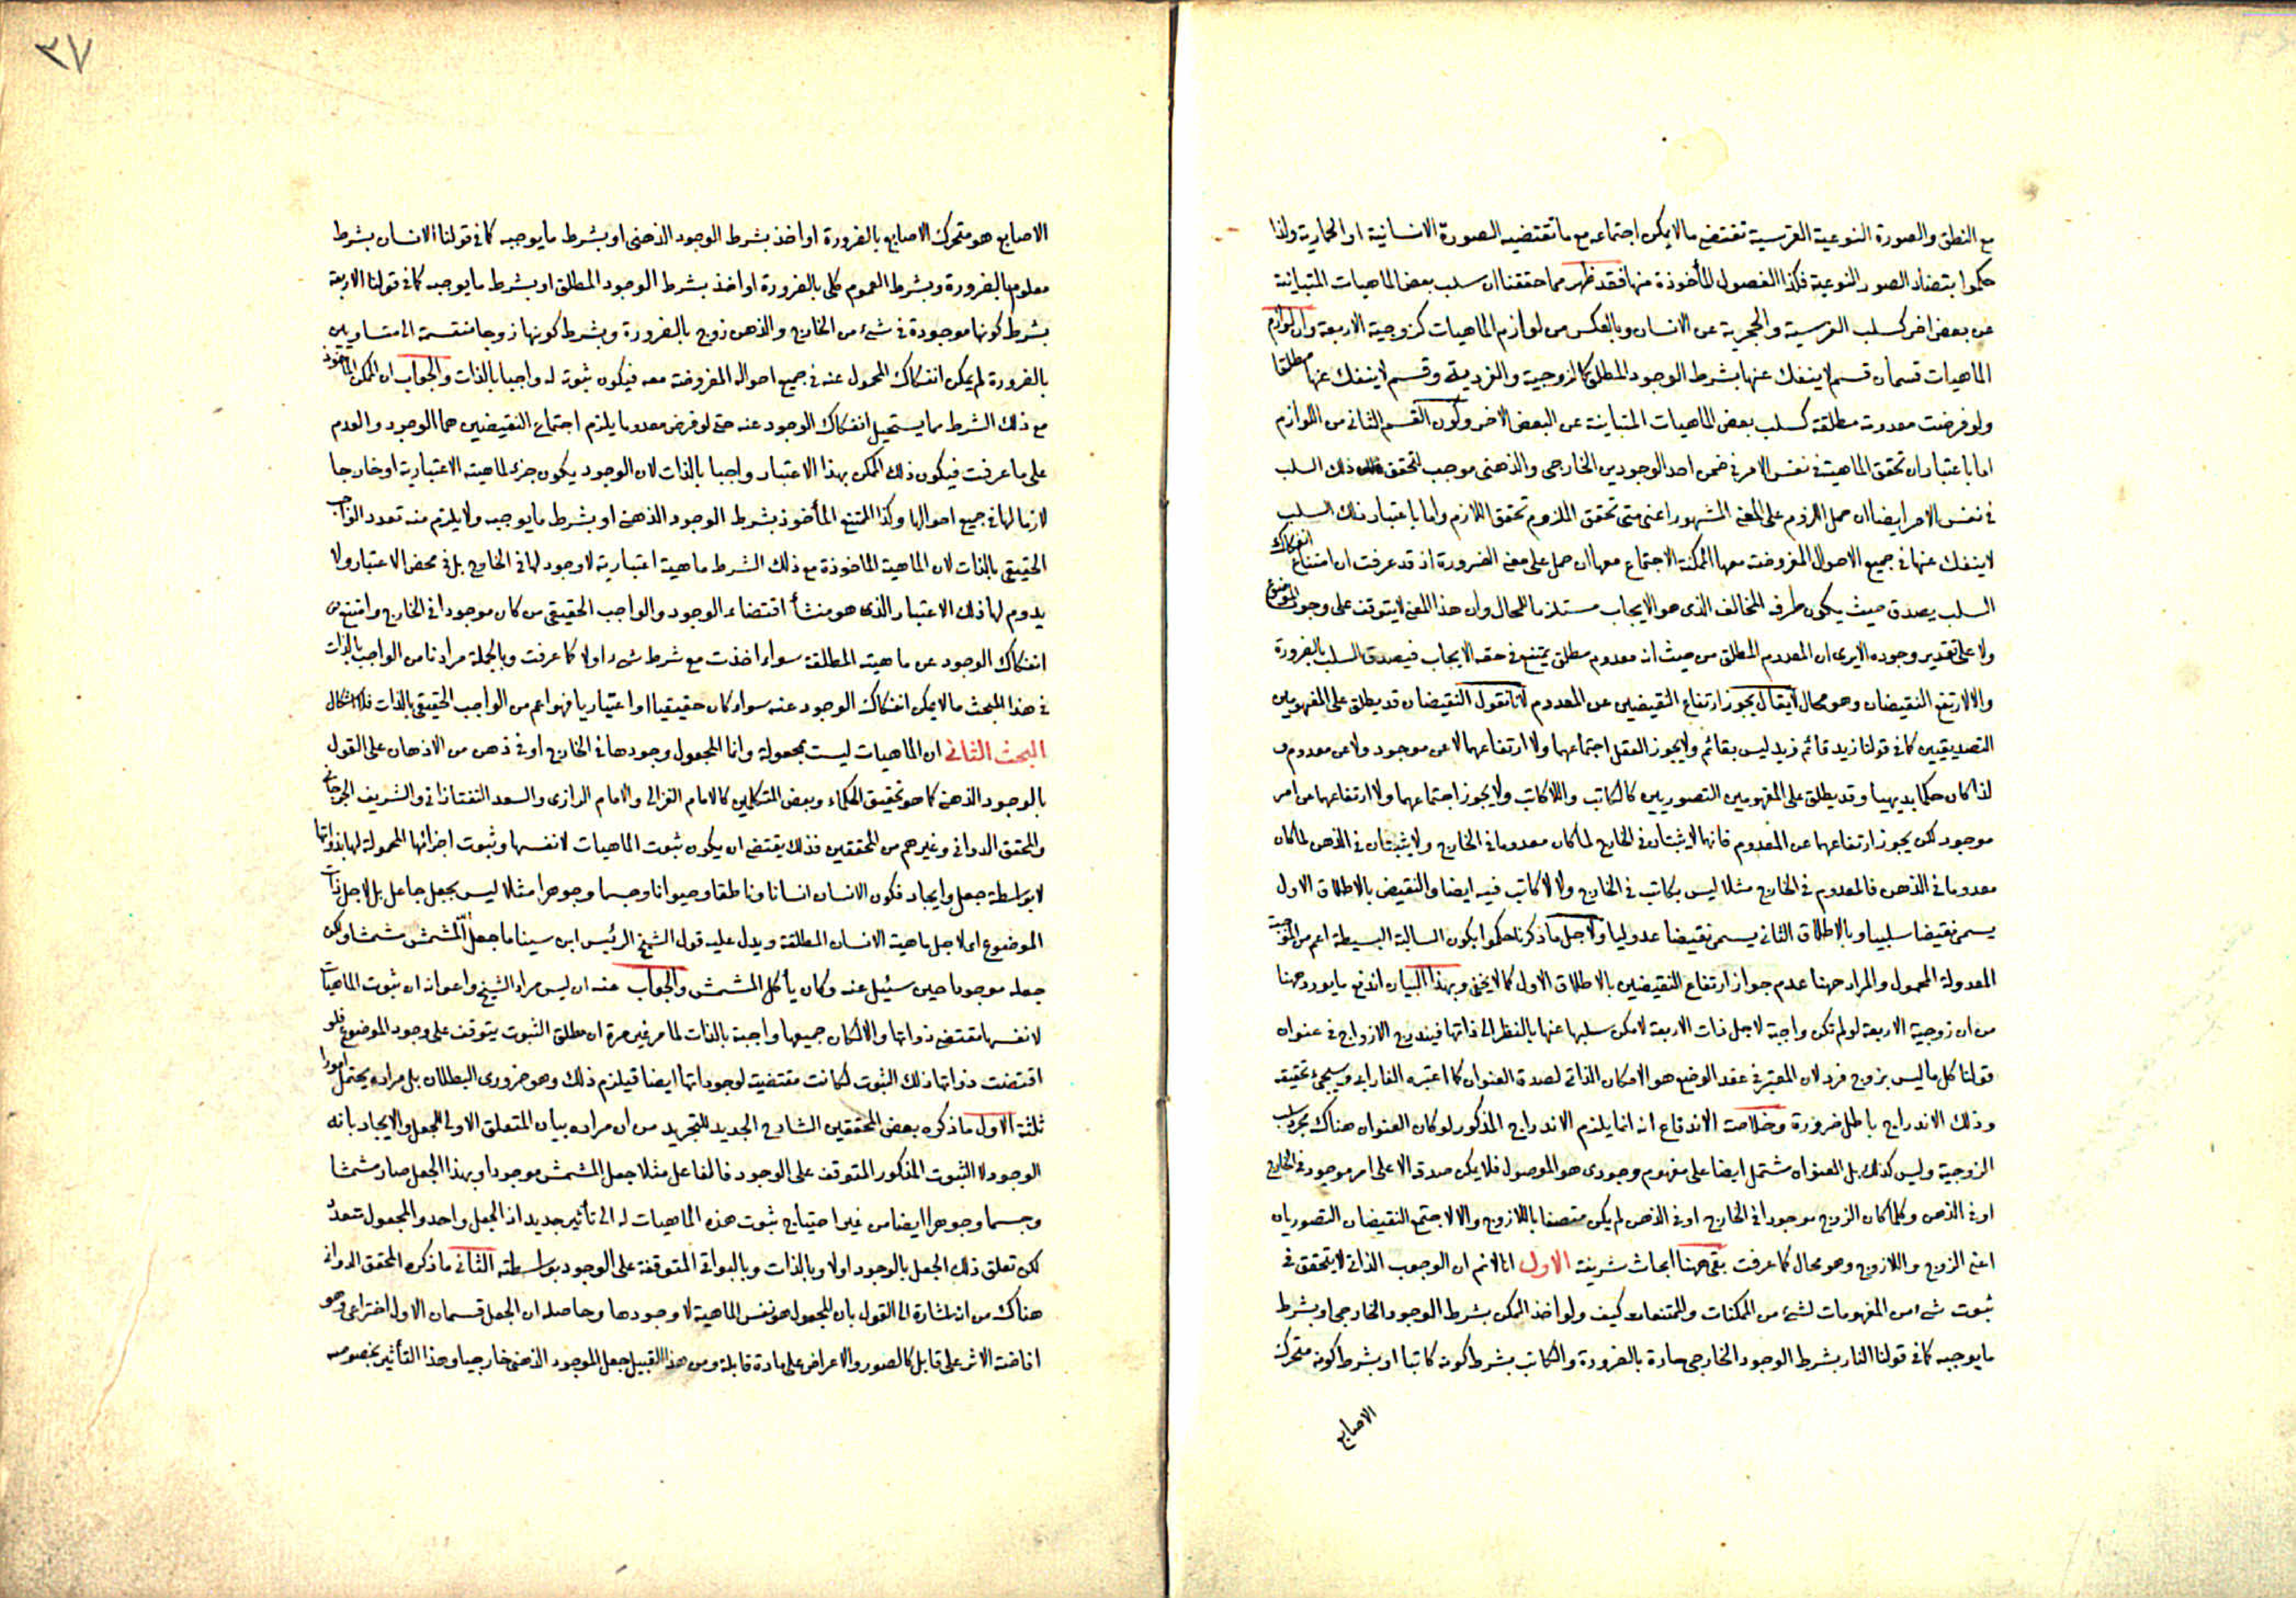 مع النطق والصورة النوعية الفرسية تقتضى ما لا يمكن اجتماعه مع ما تقتضيه الصورة الانسانية او الحمارية ولذا
حكموا بتضاد الصور النوعية فكذا الفصول المأخوذة منها فقد ظهر مما حققنا ان سلب بعض الماهيات المتباينة
عن بعض اخر كسلب الفرسية والحجرية عن الانسان وبالعكس من لوازم الماهيات كزوجية الاربعة وان لوازم
الماهيات قسمان قسم لا ينفك عنها بشرط الوجود المطلق كالزوجية والفردية وقسم لا ينفك عنها مطلقا
ولو فرضت معدومة مطلقة كسلب بعض الماهيات المتباينة عن البعض الاخر وكون القسم الثانى من اللوازم
اما باعتبار ان تحقق الماهية فى نفس الامر فى ضمن احد الوجودين الخارجى والذهنى موجب لتحقق ذلك السلب
فى نفس الامر ايضا ان حمل اللزوم على المعنى المشهور اعنى متى تحقق الملزوم تحقق اللازم واما باعتبار ان ذلك السلب
لا ينفك عنها فى جميع الاحوال المفروضة معها الممكنة الاجتماع معها ان حمل على معنى الضرورة اذ قد عرفت ان امتناع انفكاك
السلب يصدق حيث يكون طرفه المخالف الذى هو الايجاب مستلزما للمحال وان هذا المعنى لا يتوقف على وجود الموضوع
ولا على تقدير وجوده الا يرى ان المعدوم المطلق من حيث انه معدوم مطلق يمتنع فى حقه الايجاب فيصدق السلب بالضرورة
والا لارتفع النقيضان وهو محال لا يقال يجوز ارتفاع النقيضين عن المعدوم لانا نقول النقيضان قد يطلق على المفهومين
التصديقيين كما فى قولنا زيد قائم زيد ليس بقائم ولا يجوز العقل اجتماعهما ولا ارتفاعهما لا عن موجود ولا عن معدوم و
لذا كان حكما بديهيا وقد يطلق على المفهومين التصوريين كالكاتب واللاكاتب ولا يجوز اجتماعهما ولا ارتفاعهما عن امر
موجود لكن يجوز ارتفاعهما عن المعدوم فانهما لا يثبتان فى الخارج لما كان معدوما فى الخارج ولا يثبتان فى الذهن لما كان
معدوما فى الذهن فالمعدوم فى الخارج مثلا ليس بكاتب فى الخارج ولا لا كاتب فيه ايضا والنقيض بالاطلاق الاول
يسمى نقيضا سلبيا وبالاطلاق الثانى يسمى نقيضا عدوليا ولاجل ما ذكرنا حكموا بكون السالبة البسيطة اعم من الموجبة
المعدولة المحمول والمراد ههنا عدم جواز ارتفاع النقيضين بالاطلاق الاول كما لا يخفى وبهذا البيان اندفع ما يورد ههنا
من ان زوجية الاربعة لو لم تكن واجبة لاجل ذات الاربعة لامكن سلبها عنها بالنظر الى ذاتها فيندرج الازواج فى عنوان
قولنا كل ما ليس بزوج فرد لان المعتبر فى عقد الوضع هو الامكان الذاتى لصدق العنوان كما اعتبره الفارابى وسيجئ تحقيقه
وذلك الاندراج باطل ضرورة وخلاصة الاندفاع انه انما يلزم الاندراج المذكور لو كان العنوان هناك مجرد سلب
الزوجية وليس كذلك بل العنوان مشتمل ايضا على مفهوم وجودى هو الموصول فلا يمكن صدقه الا على امر موجود فى الخارج
او فى الذهن وكلما كان الزوج موجودا فى الخارج او فى الذهن لم يكن متصفا باللازوج والا لاجتمع النقيضان التصوريان
اعنى الزوج واللازوج وهو محال كما عرفت بقى ههنا ابحاث شريفة الاول انا لا نم ان الوجوب الذاتى لا يتحقق فى
ثبوت شئ من المفهومات لشئ من الممكنات والممتنعات كيف ولو اخذ الممكن بشرط الوجود الخارجى او بشرط
ما يوجبه كما فى قولنا النار بشرط الوجود الخارجى حارة بالضرورة والكاتب بشرط كونه كاتبا او بشرط كونه متحرك
الاصابع
٣٧
الاصابع هو متحرك الاصابع بالضرورة او اخذ بشرط الوجود الذهنى او بشرط ما يوجبه كما فى قولنا الانسان بشرط
معلوم بالضرورة وبشرط العموم كلى بالضرورة او اخذ بشرط الوجود المطلق او بشرط ما يوجبه كما فى قولنا الاربعة
بشرط كونها موجودة فى شئ من الخارج والذهن زوج بالضرورة وبشرط كونها زوجا منقسمة الى متساويين
بالضرورة لم يمكن انفكاك المحمول عنه فى جميع احواله المفروضة معه فيكون ثبوته له واجبا بالذات والجواب ان الممكن المأخوذ
مع ذلك الشرط مما يستحيل انفكاك الوجود عنه حتى لو فرض معدوما يلزم اجتماع النقيضين هما الوجود والعدم
على ما عرفت فيكون ذلك الممكن بهذا الاعتبار واجبا بالذات لان الوجود يكون جزء لماهيته الاعتبارية او خارجا
لازما لها فى جميع احوالها وكذا الممتنع المأخوذ بشرط الوجود الذهنى او بشرط ما يوجبه ولا يلزم منه تعدد الواجب
الحقيقى بالذات لان الماهية المأخوذة مع ذلك الشرط ماهية اعتبارية لا وجود لها فى الخارج بل فى محض الاعتبار ولا
يدوم لها ذلك الاعتبار الذى هو منشأ اقتضاء الوجود والواجب الحقيقى من كان موجودا فى الخارج وامتنع
انفكاك الوجود عن ماهيته المطلقة سواء اخذت مع شرط شئ اولا كما عرفت وبالجملة مرادنا من الواجب بالذات
فى هذا المبحث ما لا يمكن انفكاك الوجود عنه سواء كان حقيقيا او اعتباريا فهو اعم من الواجب الحقيقى بالذات فلا اشكال
البحث الثانى ان الماهيات ليست بمجعولة وانما المجعول وجودها فى الخارج او فى ذهن من الاذهان على القول
بالوجود الذهنى كما هو تحقيق الحكماء وبعض المتكلمين كالامام الغزالى والامام الرازى والسعد التفتازانى والشريف الجرجانى
والمحقق الدوانى وغيرهم من المحققين فذلك يقتضى ان يكون ثبوت الماهيات لانفسها وثبوت اجزائها المحمولة لها بذواتها
لا بواسطة جعل وايجاد فكون الانسان انسانا وناطقا وحيوانا وجسما وجوهرا مثلا ليس بجعل جاعل بل لاجل ذات
الموضوع اى لاجل ماهية الانسان المطلقة ويدل عليه قول الشيخ الرئيس ابن سينا ما جعل الله المشمش مشمشا ولكن
جعله موجودا حين سئل عنه وكان يأكل المشمش والجواب عنه ان ليس مراد الشيخ واعوانه ان ثبوت الماهيات
لانفسها تقتضيه ذواتها والا لكان جميعها واجبة بالذات لما مر غير مرة ان مطلق الثبوت يتوقف على وجود الموضوع فلو
اقتضت ذواتها ذلك الثبوت لكانت مقتضية لوجوداتها ايضا فيلزم ذلك وهو ضرورى البطلان بل مراده يحتمل امورا
ثلثة الاول ما ذكره بعض المحققين الشارح الجديد للتجريد من ان مراده بيان المتعلق الاولى للجعل والايجاد بانه
الوجود لا الثبوت المذكور المتوقف على الوجود فالفاعل مثلا جعل المشمش موجودا وبهذا الجعل صار مشمشا
وجسما وجوهرا ايضا من غير احتياج ثبوت هذه الماهيات له الى تأثير جديد اذ الجعل واحد والمجعول متعدد
لكن تعلق ذلك الجعل بالوجود اولا وبالذات وبالبواقى المتوقفة على الوجود بواسطته الثانى ما ذكره المحقق الدوانى
هناك من انه اشارة الى القول بان المجعول هو نفس الماهية لا وجودها وحاصله ان الجعل قسمان الاول اختراعى وهو
افاضة الاثر على قابل كالصور والاعراض على مادة قابلة ومن هذا القبيل جعل الموجود الذهنى خارجيا وهذا التأثير بخصوصه